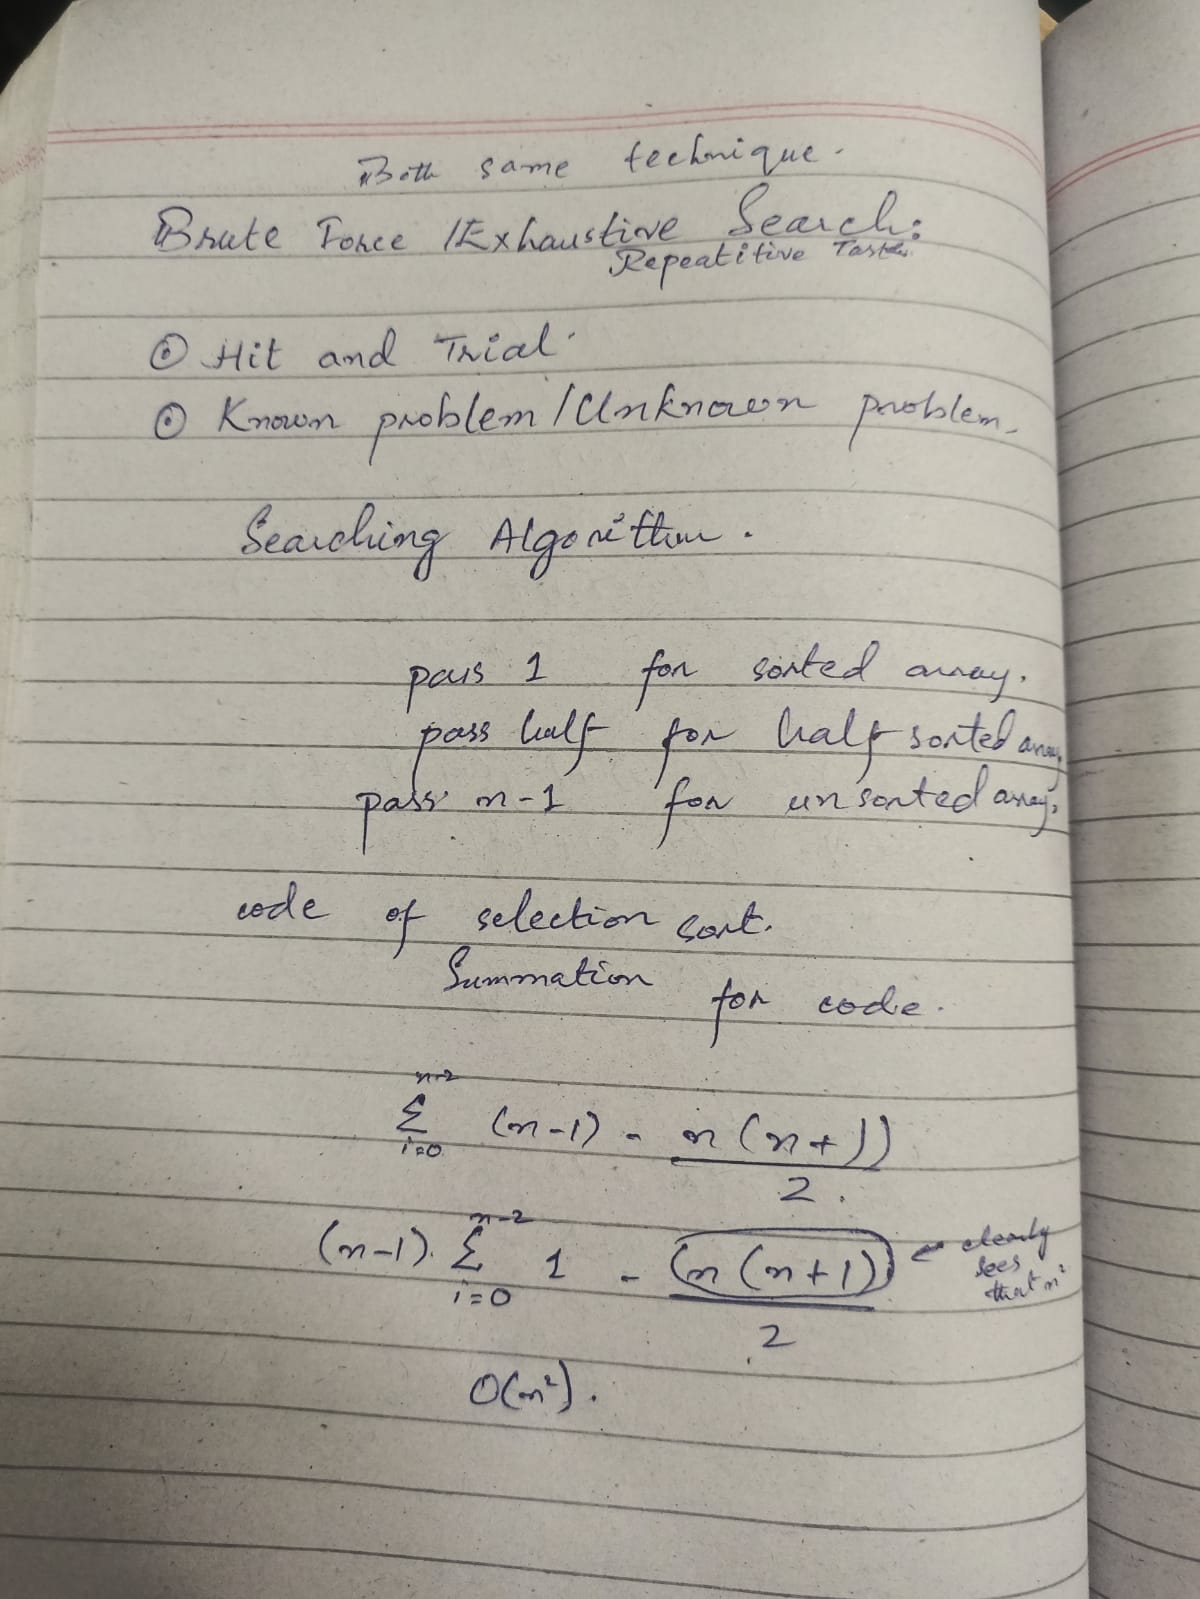 Both same technique.
Brute Force / Exhaustive Search:
Repeatitive Tasks.
⊙ Hit and Trial.
⊙ Known problem / Unknown problem.
Searching Algorithm.
pass 1 for sorted array.
pass half for half sorted array.
pass n-1 for unsorted array.
code of selection sort.
Summation for code.
n-2
Σ (n-1) - n(n+1)
i=0 2.
n-2
(n-1). Σ 1 - (n(n+1)) ← clearly
i=0 2 sees
that n²
O(n²).